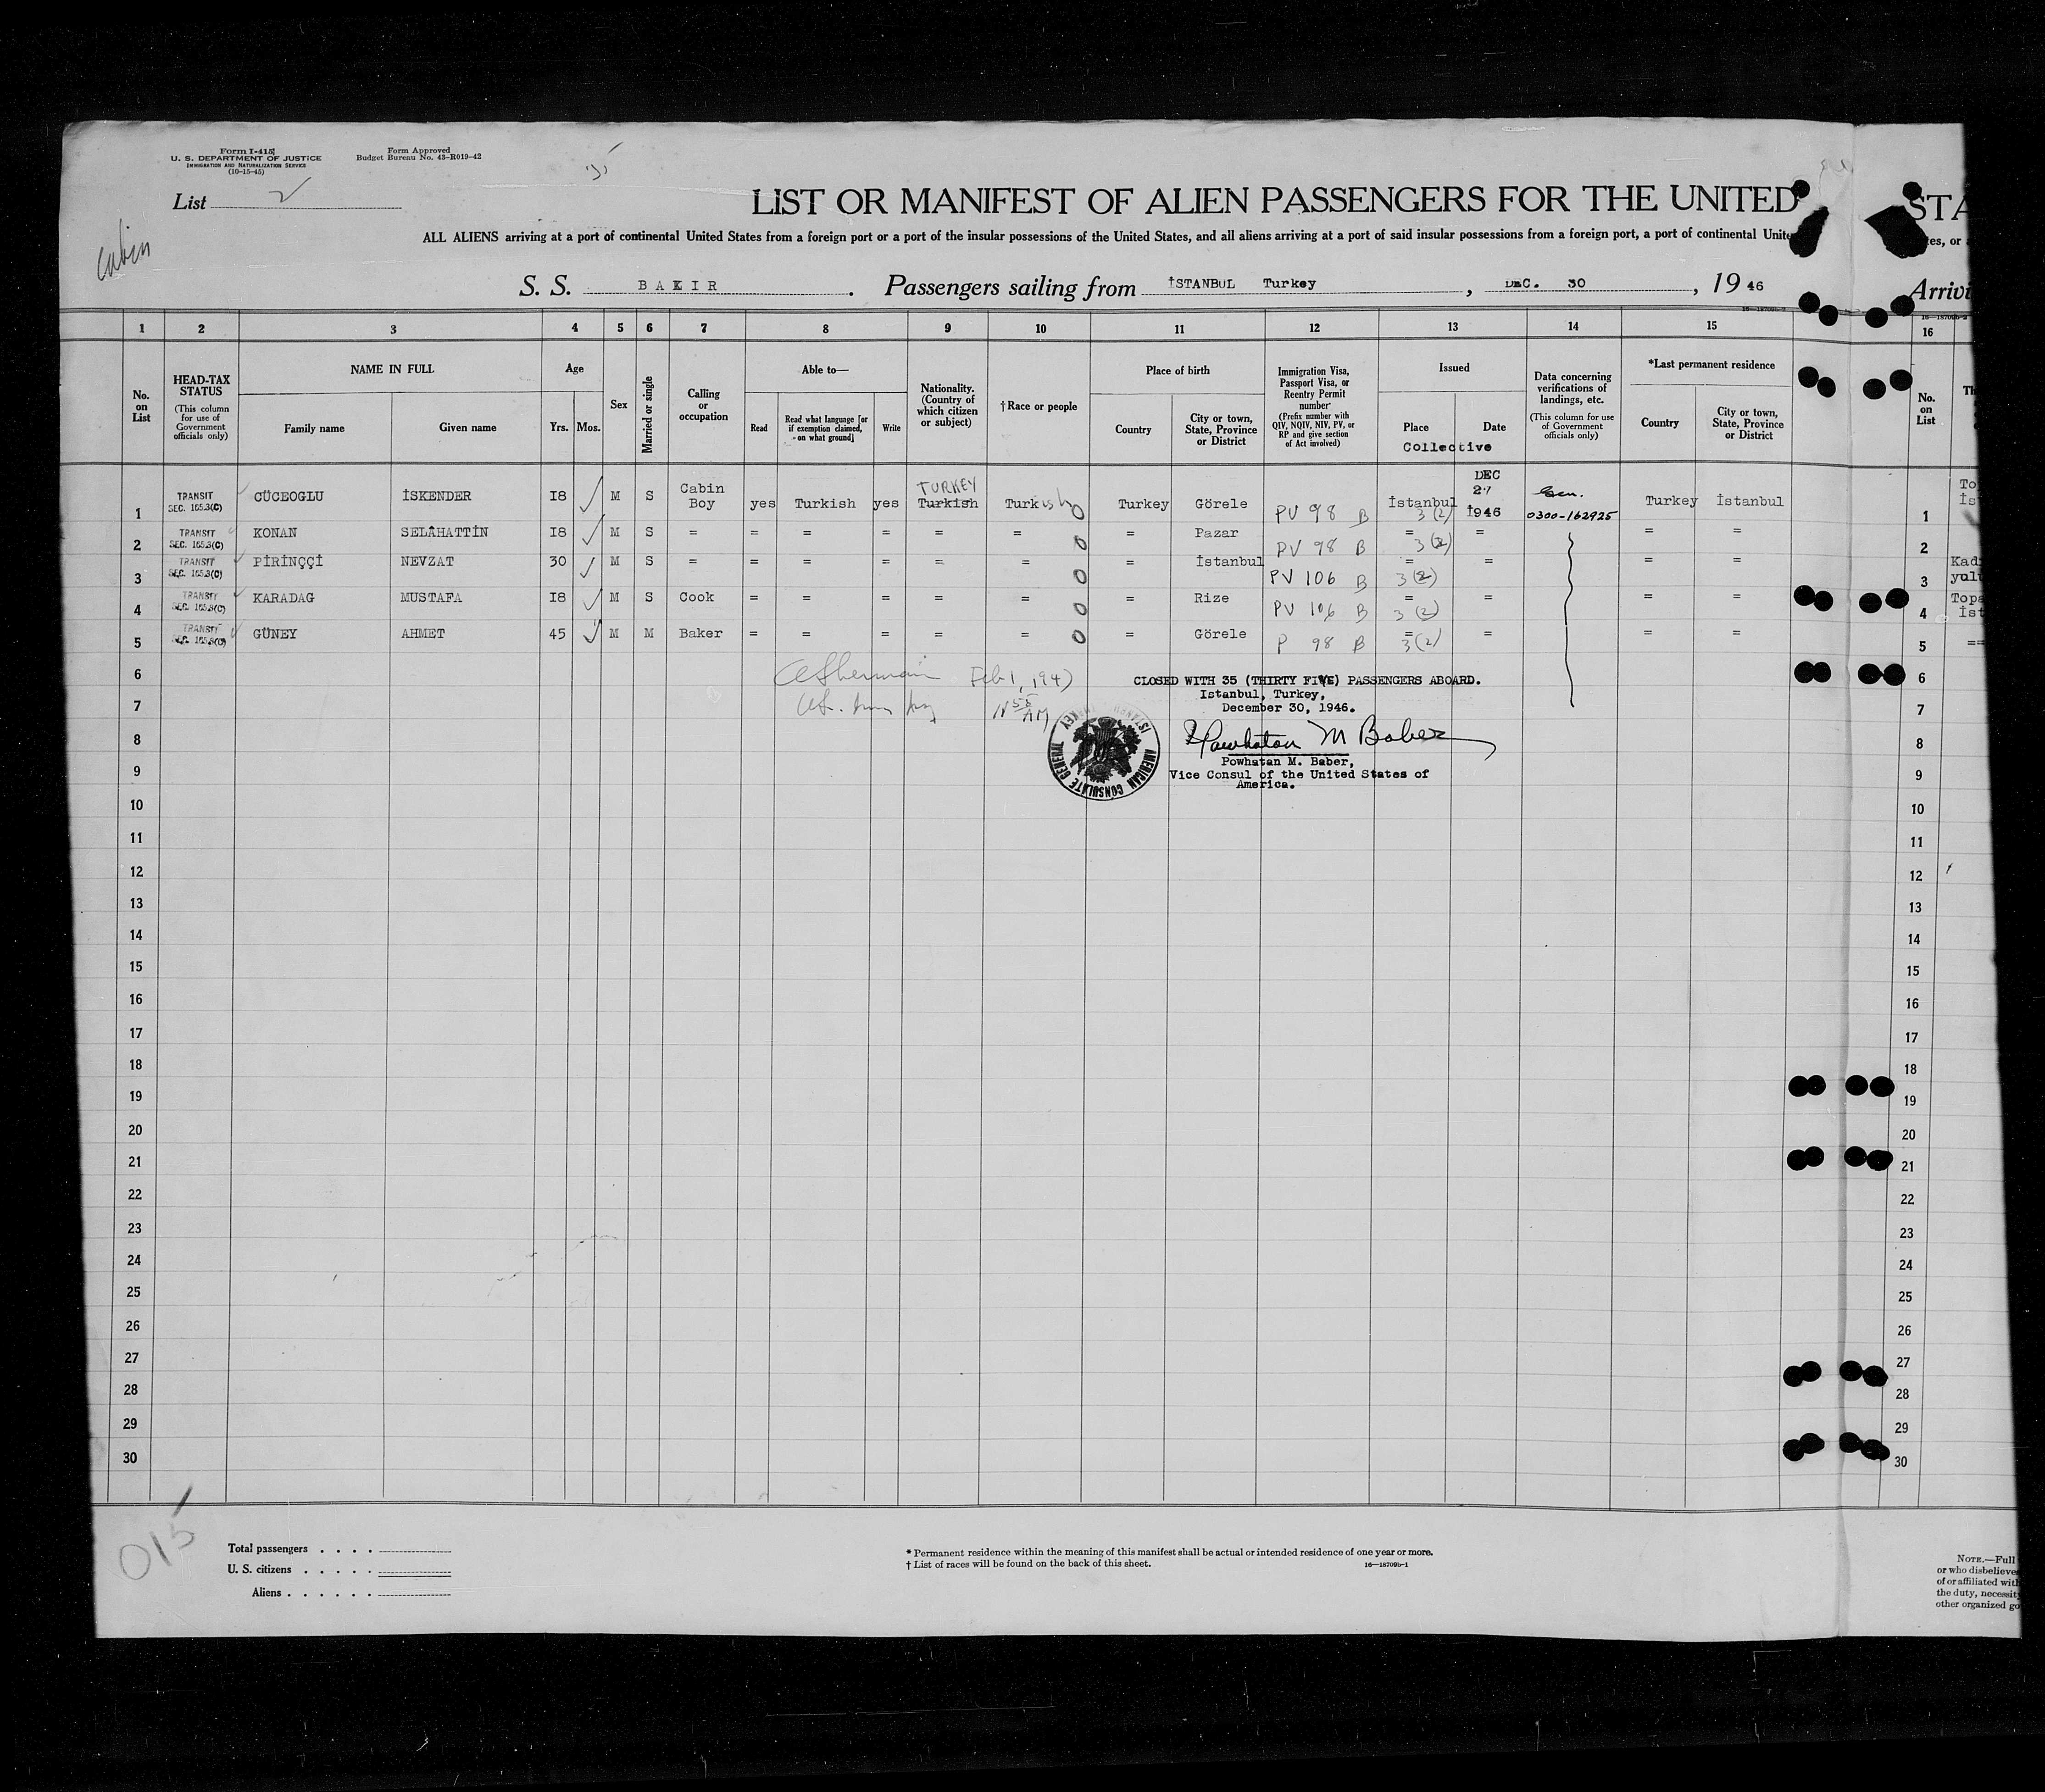 Form I-415
U. S. DEPARTMENT OF JUSTICE
IMMIGRATION AND NATURALIZATION SERVICE
(10-15-45)
Form Approved
Budget Bureau No. 43-R019-42
List 2
Cabin
LIST OR MANIFEST OF ALIEN PASSENGERS FOR THE UNITED STA
ALL ALIENS arriving at a port of continental United States from a foreign port or a port of the insular possessions of the United States, and all aliens arriving at a port of said insular possessions from a foreign port, a port of continental Unite
tes, or a
S. S. BAKIR. Passengers sailing from İSTANBUL Turkey, DEC. 30, 19 46
Arrivi
16—18709b-2
1 2 3 4 5 6 7 8 9 10 11 12 13 14 15 16
No. on List
HEAD-TAX STATUS
(This column for use of Government officials only)
NAME IN FULL
Family name
Given name
Age
Yrs. Mos.
Sex
Married or single
Calling or occupation
Able to—
Read
Read what language [or if exemption claimed, on what ground]
Write
Nationality. (Country of which citizen or subject)
†Race or people
Place of birth
Country
City or town, State, Province or District
Immigration Visa, Passport Visa, or Reentry Permit number
(Prefix number with QIV, NQIV, NIV, PV, or RP and give section of Act involved)
Issued
Place
Date
Collective
Data concerning verifications of landings, etc.
(This column for use of Government officials only)
*Last permanent residence
Country
City or town, State, Province or District
No. on List
1 TRANSIT SEC. 165.3(C) CÜCEOGLU İSKENDER 18 M S Cabin Boy yes Turkish yes TURKEY Turkish Turkish 0 Turkey Görele PV 98 B İstanbul 3(2) DEC 27 1946 0300-162925 Turkey İstanbul 1
2 TRANSIT SEC. 165.3(C) KONAN SELÂHATTİN 18 M S = = = = = = 0 = Pazar PV 98 B = 3(2) = = = 2
3 TRANSIT SEC. 165.3(C) PİRİNÇÇİ NEVZAT 30 M S = = = = = = 0 = İstanbul PV 106 B = 3(2) = = = 3 Kadı
4 TRANSIT SEC. 165.3(C) KARADAG MUSTAFA 18 M S Cook = = = = = 0 = Rize PV 106 B = 3(2) = = = 4 Topa
5 TRANSIT SEC. 165.3(C) GÜNEY AHMET 45 M M Baker = = = = = 0 = Görele P 98 B = 3(2) = = = 5 ==
6 Feb 1, 1947 6
7 AM 7
CLOSED WITH 35 (THIRTY FIVE) PASSENGERS ABOARD.
Istanbul, Turkey,
December 30, 1946.
Powhatan M Baber
Powhatan M. Baber,
Vice Consul of the United States of
America.
AMERICAN CONSULATE GENERAL ISTANBUL TURKEY
8 8
9 9
10 10
11 11
12 12
13 13
14 14
15 15
16 16
17 17
18 18
19 19
20 20
21 21
22 22
23 23
24 24
25 25
26 26
27 27
28 28
29 29
30 30
015
Total passengers . . . .
U. S. citizens . . . . .
Aliens . . . . . .
* Permanent residence within the meaning of this manifest shall be actual or intended residence of one year or more.
† List of races will be found on the back of this sheet.
16—18709b-1
NOTE.—Full
or who disbelieve
of or affiliated with
the duty, necessity
other organized go